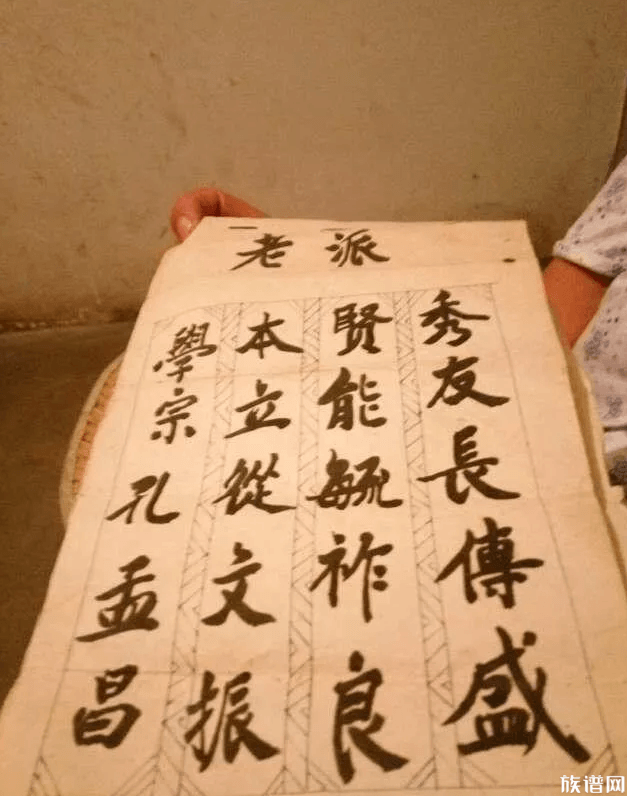 老派
秀友長傳盛
賢能毓祚良
本立從文振
學宗孔孟昌
族谱网